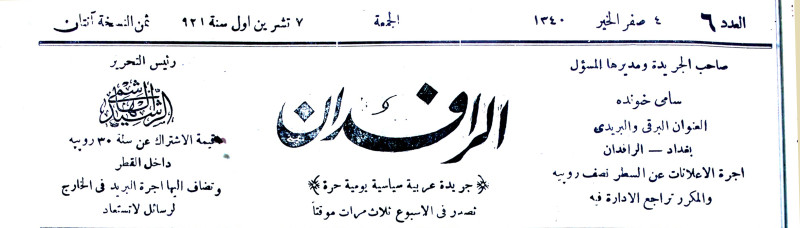 العدد ٦
٤ صفر الخير ١٣٤٠
الجمعة
٧ تشرين اول سنة ٩٢١
ثمن النسخة آنتان
صاحب الجريدة ومديرها المسؤل
سامى خونده
العنوان البرقى والبريدى
بغداد — الرافدان
اجرة الاعلانات عن السطر نصف روبيه
والمكرر تراجع الادارة فيه
الرافدان
﴿ جريدة عربية سياسية يومية حرة ﴾
تصدر فى الاسبوع ثلاث مرات موقتاً
رئيس التحرير
قيمة الاشتراك عن سنة ٣٠ روبيه
داخل القطر
وتضاف اليها اجرة البريد فى الخارج
لرسائل لاتستعاد